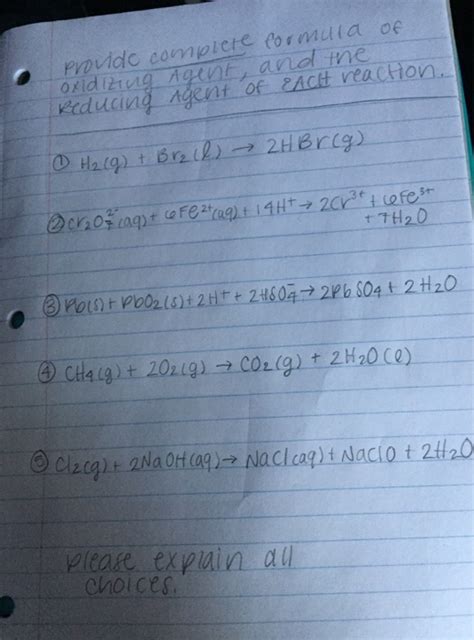 Provide complete formula of
oxidizing Agent, and the
Reducing Agent of EACH reaction.
① H₂(g) + Br₂(l) → 2HBr(g)
② Cr₂O₇²⁻(aq) + 6Fe²⁺(aq) + 14H⁺ → 2Cr³⁺ + 6Fe³⁺
+ 7H₂O
③ Pb(s) + PbO₂(s) + 2H⁺ + 2HSO₄⁻ → 2PbSO₄ + 2H₂O
④ CH₄(g) + 2O₂(g) → CO₂(g) + 2H₂O(l)
⑤ Cl₂(g) + 2NaOH(aq) → NaCl(aq) + NaClO + 2H₂O
please explain all
choices.